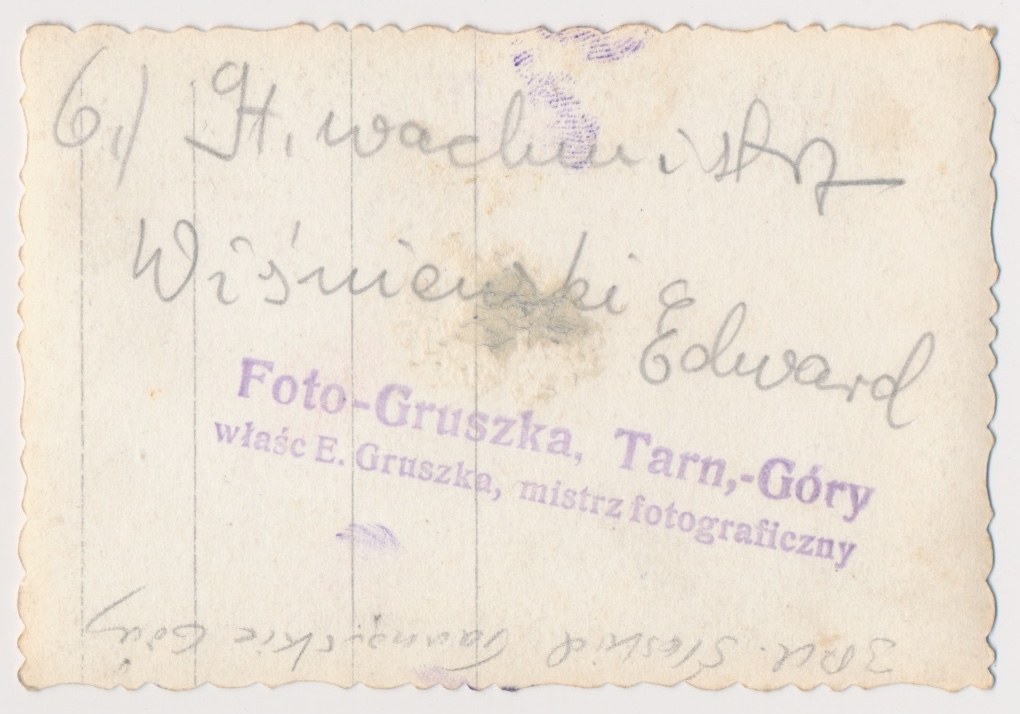 6.) St. wachmistrz
Wiśniewski Edward
Foto-Gruszka, Tarn,-Góry
właśc E. Gruszka, mistrz fotograficzny
3 Puł. Góry